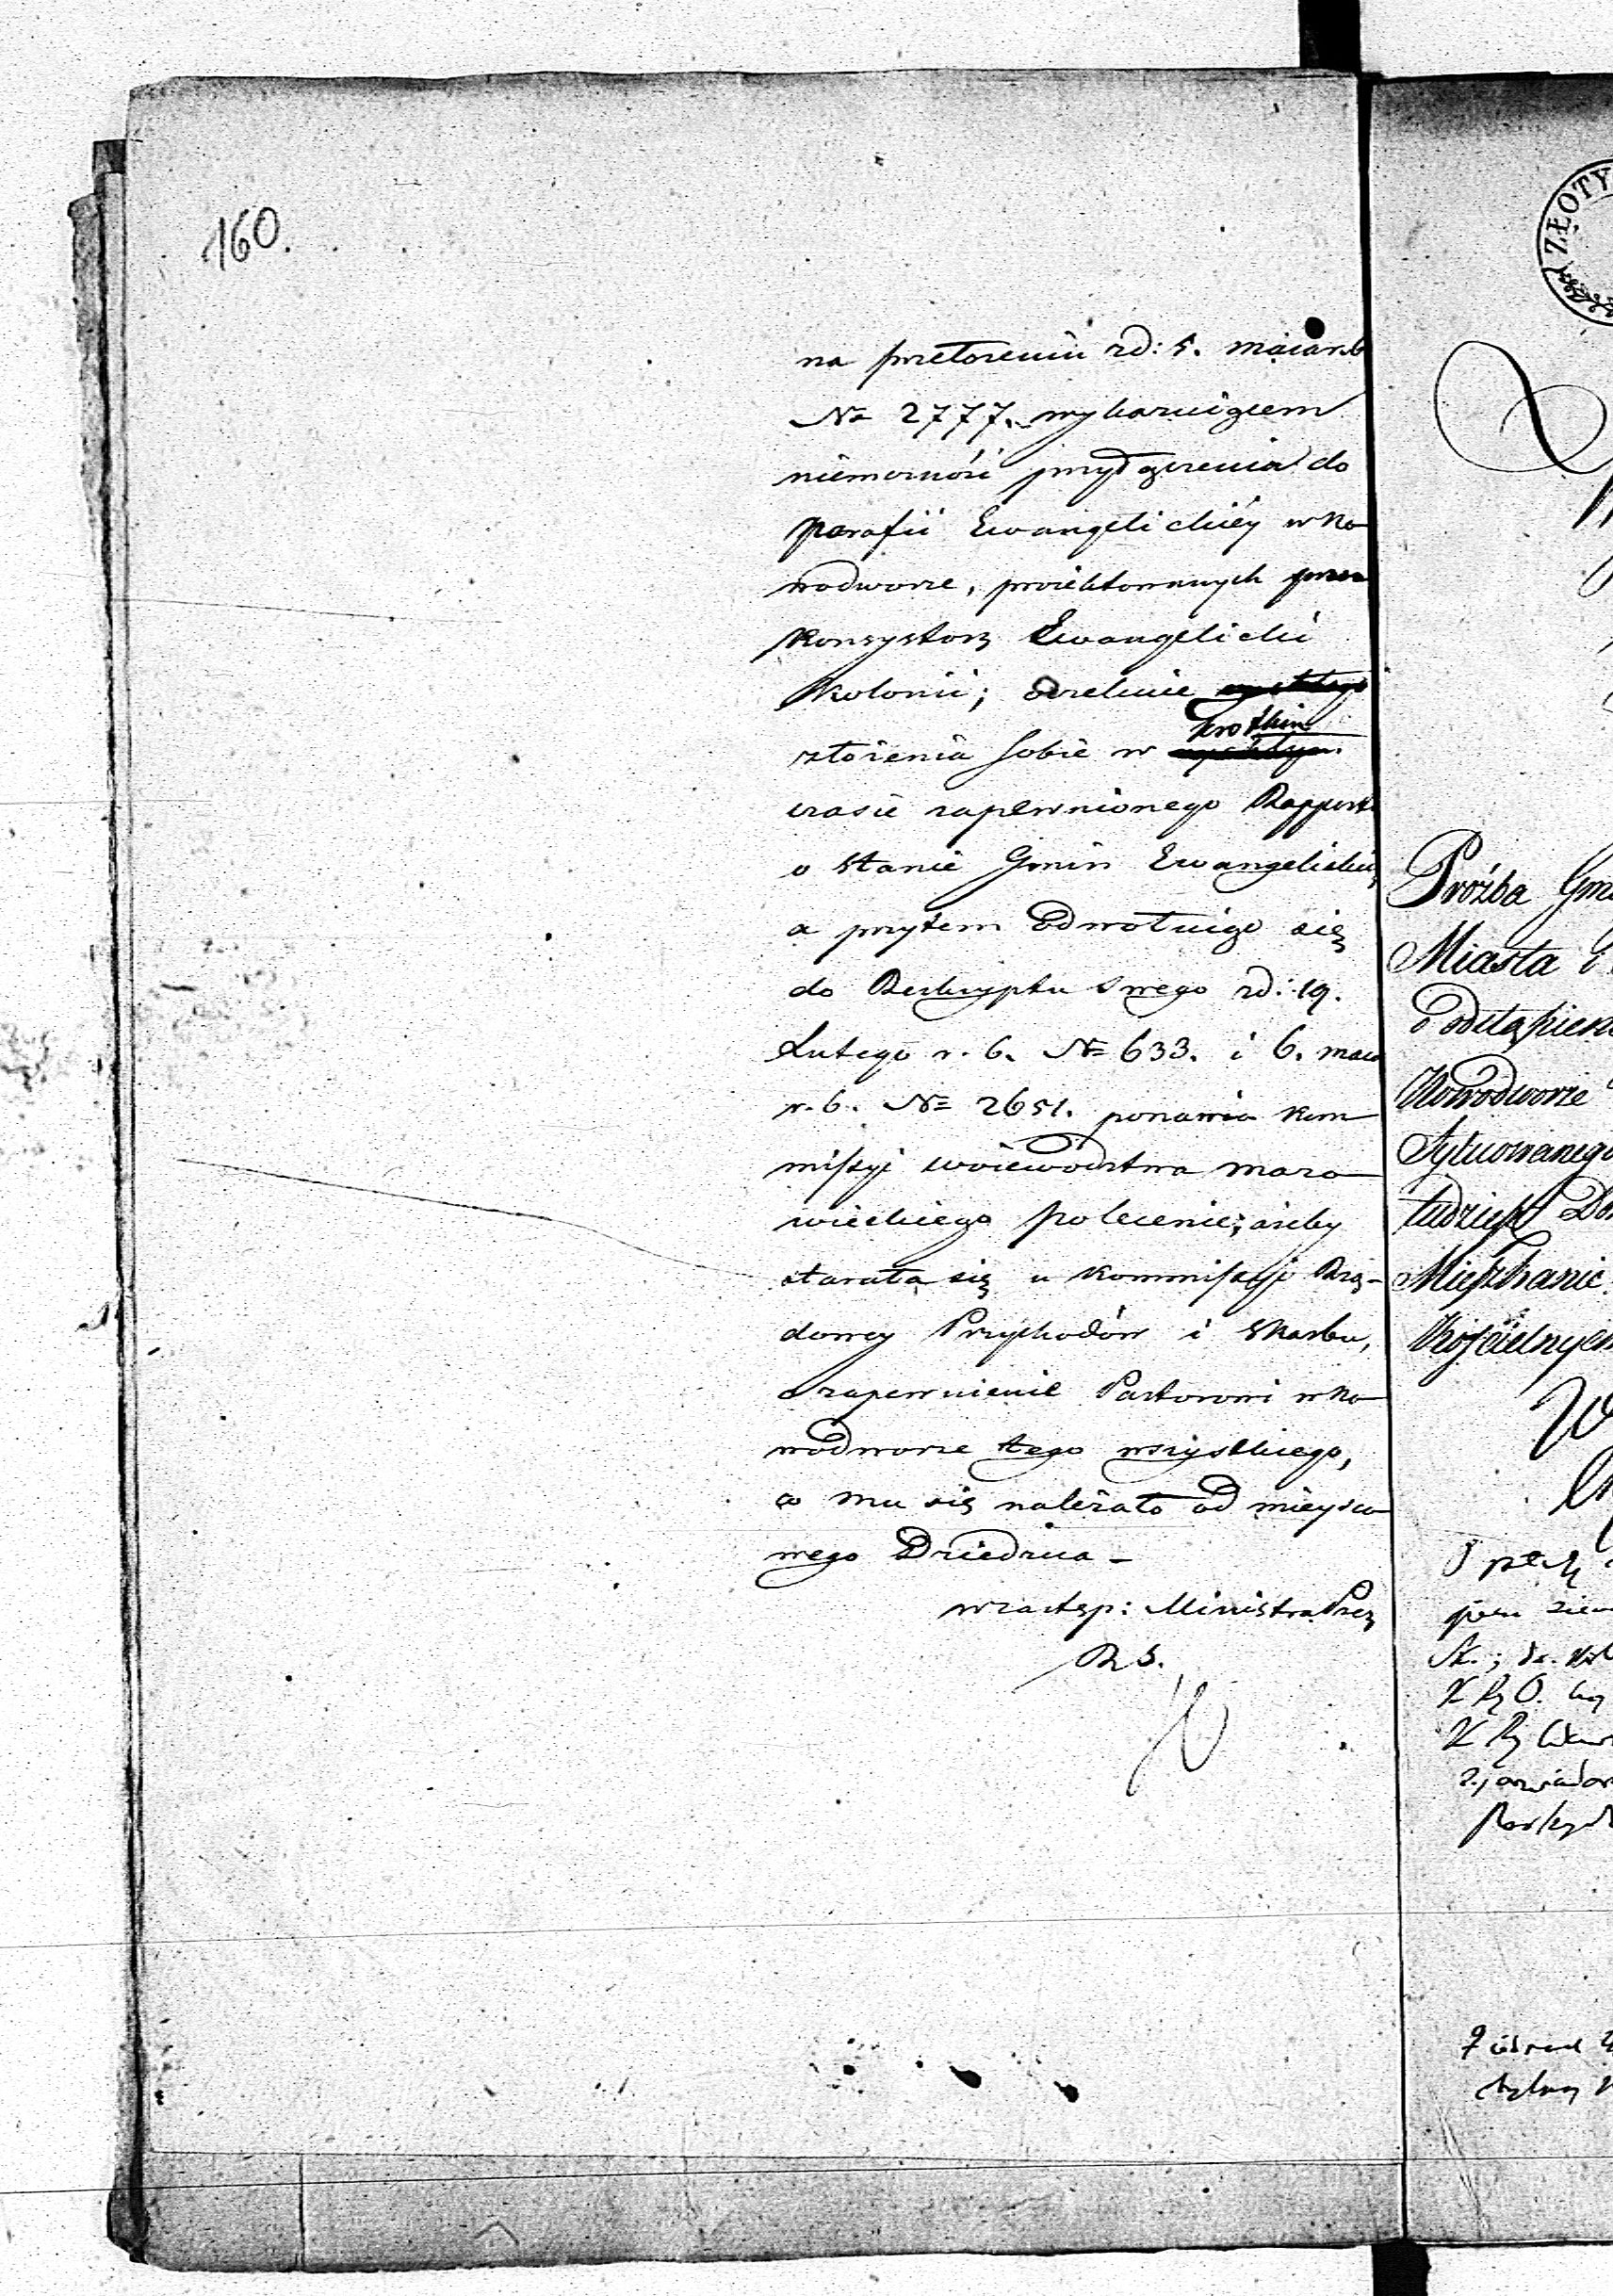 160.
na przełożeniu zd: 5. maia r.b
№ 2777. wykazuiącem
niemożność przyłączenia do
parafii Ewangelickiéy w No
wodworze, proiektowanych przez
Konsystorz Ewangelicki
Kolonii; oczekuie
krótkim
złożenia sobie w
czasie zapewnionego Rapportu
o stanie Gmin Ewangelickich,
a przytem odwołuiąc się
do Reskryptu swego zd: 19.
Lutego r. b. № 633. i 6. maia
r. b. № 2651. ponawia Kom
missyi woiewództwa mazo
wieckiego polecenie; ażeby
starała się u Kommissyi Rzą-
dowey Przychodów i Skarbu,
o zapewnienie Pastorowi w No
wodworze tego wszystkiego,
co mu się należało od mieysco
wego Dziedzica -
w zastęp: Ministra Prez
R. S.
ZŁOTY
Proźba Gm
Miasta i
o odstąpieni
Nowodworze
Sytuowanego
tudzież Do
Mieszkanie
Kościelnych